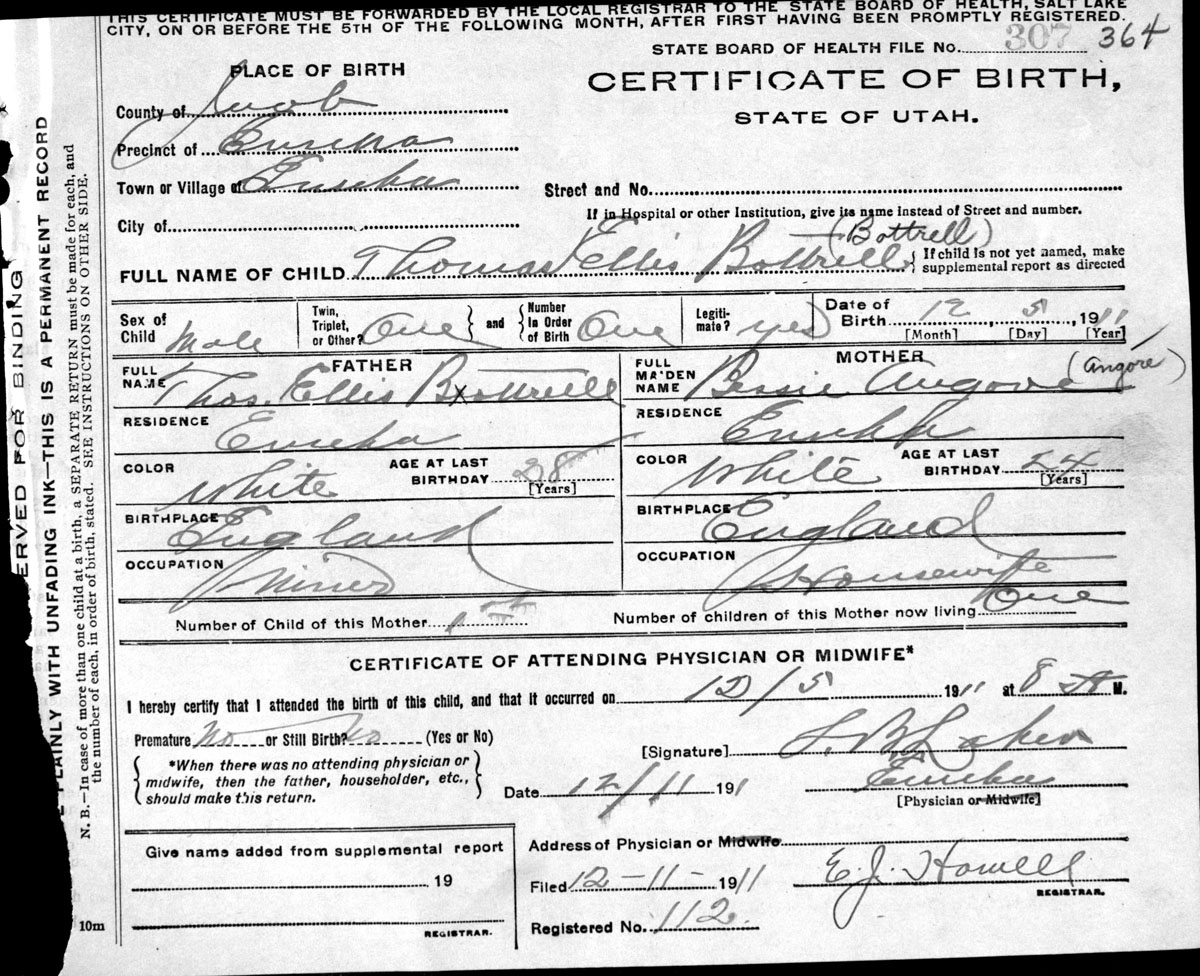 THIS CERTIFICATE MUST BE FORWARDED BY THE LOCAL REGISTRAR TO THE STATE BOARD OF HEALTH, SALT LAKE
CITY, ON OR BEFORE THE 5TH OF THE FOLLOWING MONTH, AFTER FIRST HAVING BEEN PROMPTLY REGISTERED.
STATE BOARD OF HEALTH FILE No. 307 364
PLACE OF BIRTH
CERTIFICATE OF BIRTH,
STATE OF UTAH.
County of Juab
Precinct of Eureka
Town or Village of Eureka
Street and No.
If in Hospital or other Institution, give its name instead of Street and number.
City of
(Bottrell)
FULL NAME OF CHILD Thomas Ellis Bottrell { If child is not yet named, make
supplemental report as directed
Sex of Child Male
Twin, Triplet, or Other? One } and { Number In Order of Birth One
Legiti-mate? yes
Date of Birth 12, 5, 1911
[Month] [Day] [Year]
FATHER
FULL NAME Thos. Ellis Bottrell
RESIDENCE Eureka
COLOR White
AGE AT LAST BIRTHDAY 28
[Years]
BIRTHPLACE England
OCCUPATION Miner
MOTHER
FULL MAIDEN NAME Bessie Angove (Angore)
RESIDENCE Eureka
COLOR White
AGE AT LAST BIRTHDAY 24
[Years]
BIRTHPLACE England
OCCUPATION Housewife
Number of Child of this Mother 1st
Number of children of this Mother now living One
CERTIFICATE OF ATTENDING PHYSICIAN OR MIDWIFE*
I hereby certify that I attended the birth of this child, and that it occurred on 12/5 1911 at 8 M.
Premature No or Still Birth? No (Yes or No)
*When there was no attending physician or
midwife, then the father, householder, etc.,
should make this return.
[Signature]
Eureka
[Physician or Midwife]
Date 12/11 1911
Give name added from supplemental report
19
REGISTRAR.
10m
Address of Physician or Midwife
Filed 12-11-1911
E. J. Howell
REGISTRAR.
Registered No. 112
ERVED FOR BINDING
PLAINLY WITH UNFADING INK—THIS IS A PERMANENT RECORD
N. B.—In case of more than one child at a birth, a SEPARATE RETURN must be made for each, and
the number of each, in order of birth, stated. SEE INSTRUCTIONS ON OTHER SIDE.